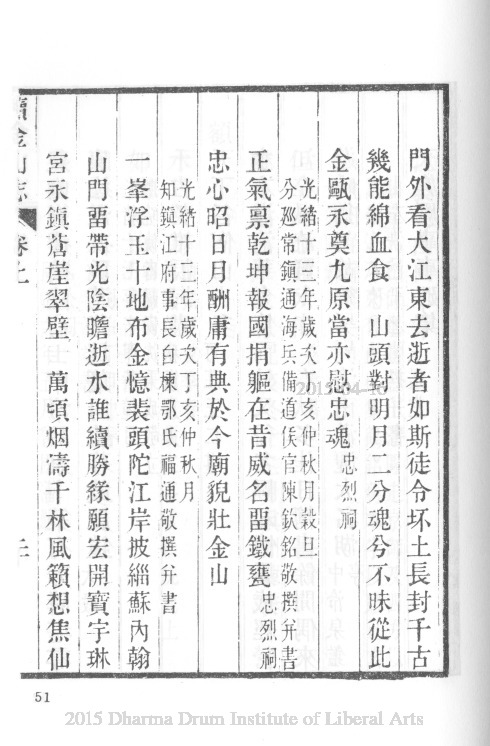 門外看大江東去逝者如斯徒令坏土長封千古
幾能綿血食 山頭對明月二分魂兮不昧從此
金甌永奠九原當亦慰忠魂 忠烈祠
光緒十三年歲次丁亥仲秋月穀旦
分廵常鎮通海兵備道侯官陳欽銘敬撰并書
正氣禀乾坤報國捐軀在昔威名畱鐵甕 忠烈祠
忠心昭日月酬庸有典於今廟貌壯金山
光緒十三年歲次丁亥仲秋月
知鎮江府事長白棟鄂氏福通敬撰并書
一峯浮玉十地布金憶裴頭陀江岸披緇蘇內翰
山門畱帶光陰瞻逝水誰續勝緣願宏開寶宇琳
宮永鎮蒼崖翠壁 萬頃烟濤千林風籟想焦仙
續金山志
卷上
2015-04-16
51
2015 Dharma Drum Institute of Liberal Arts